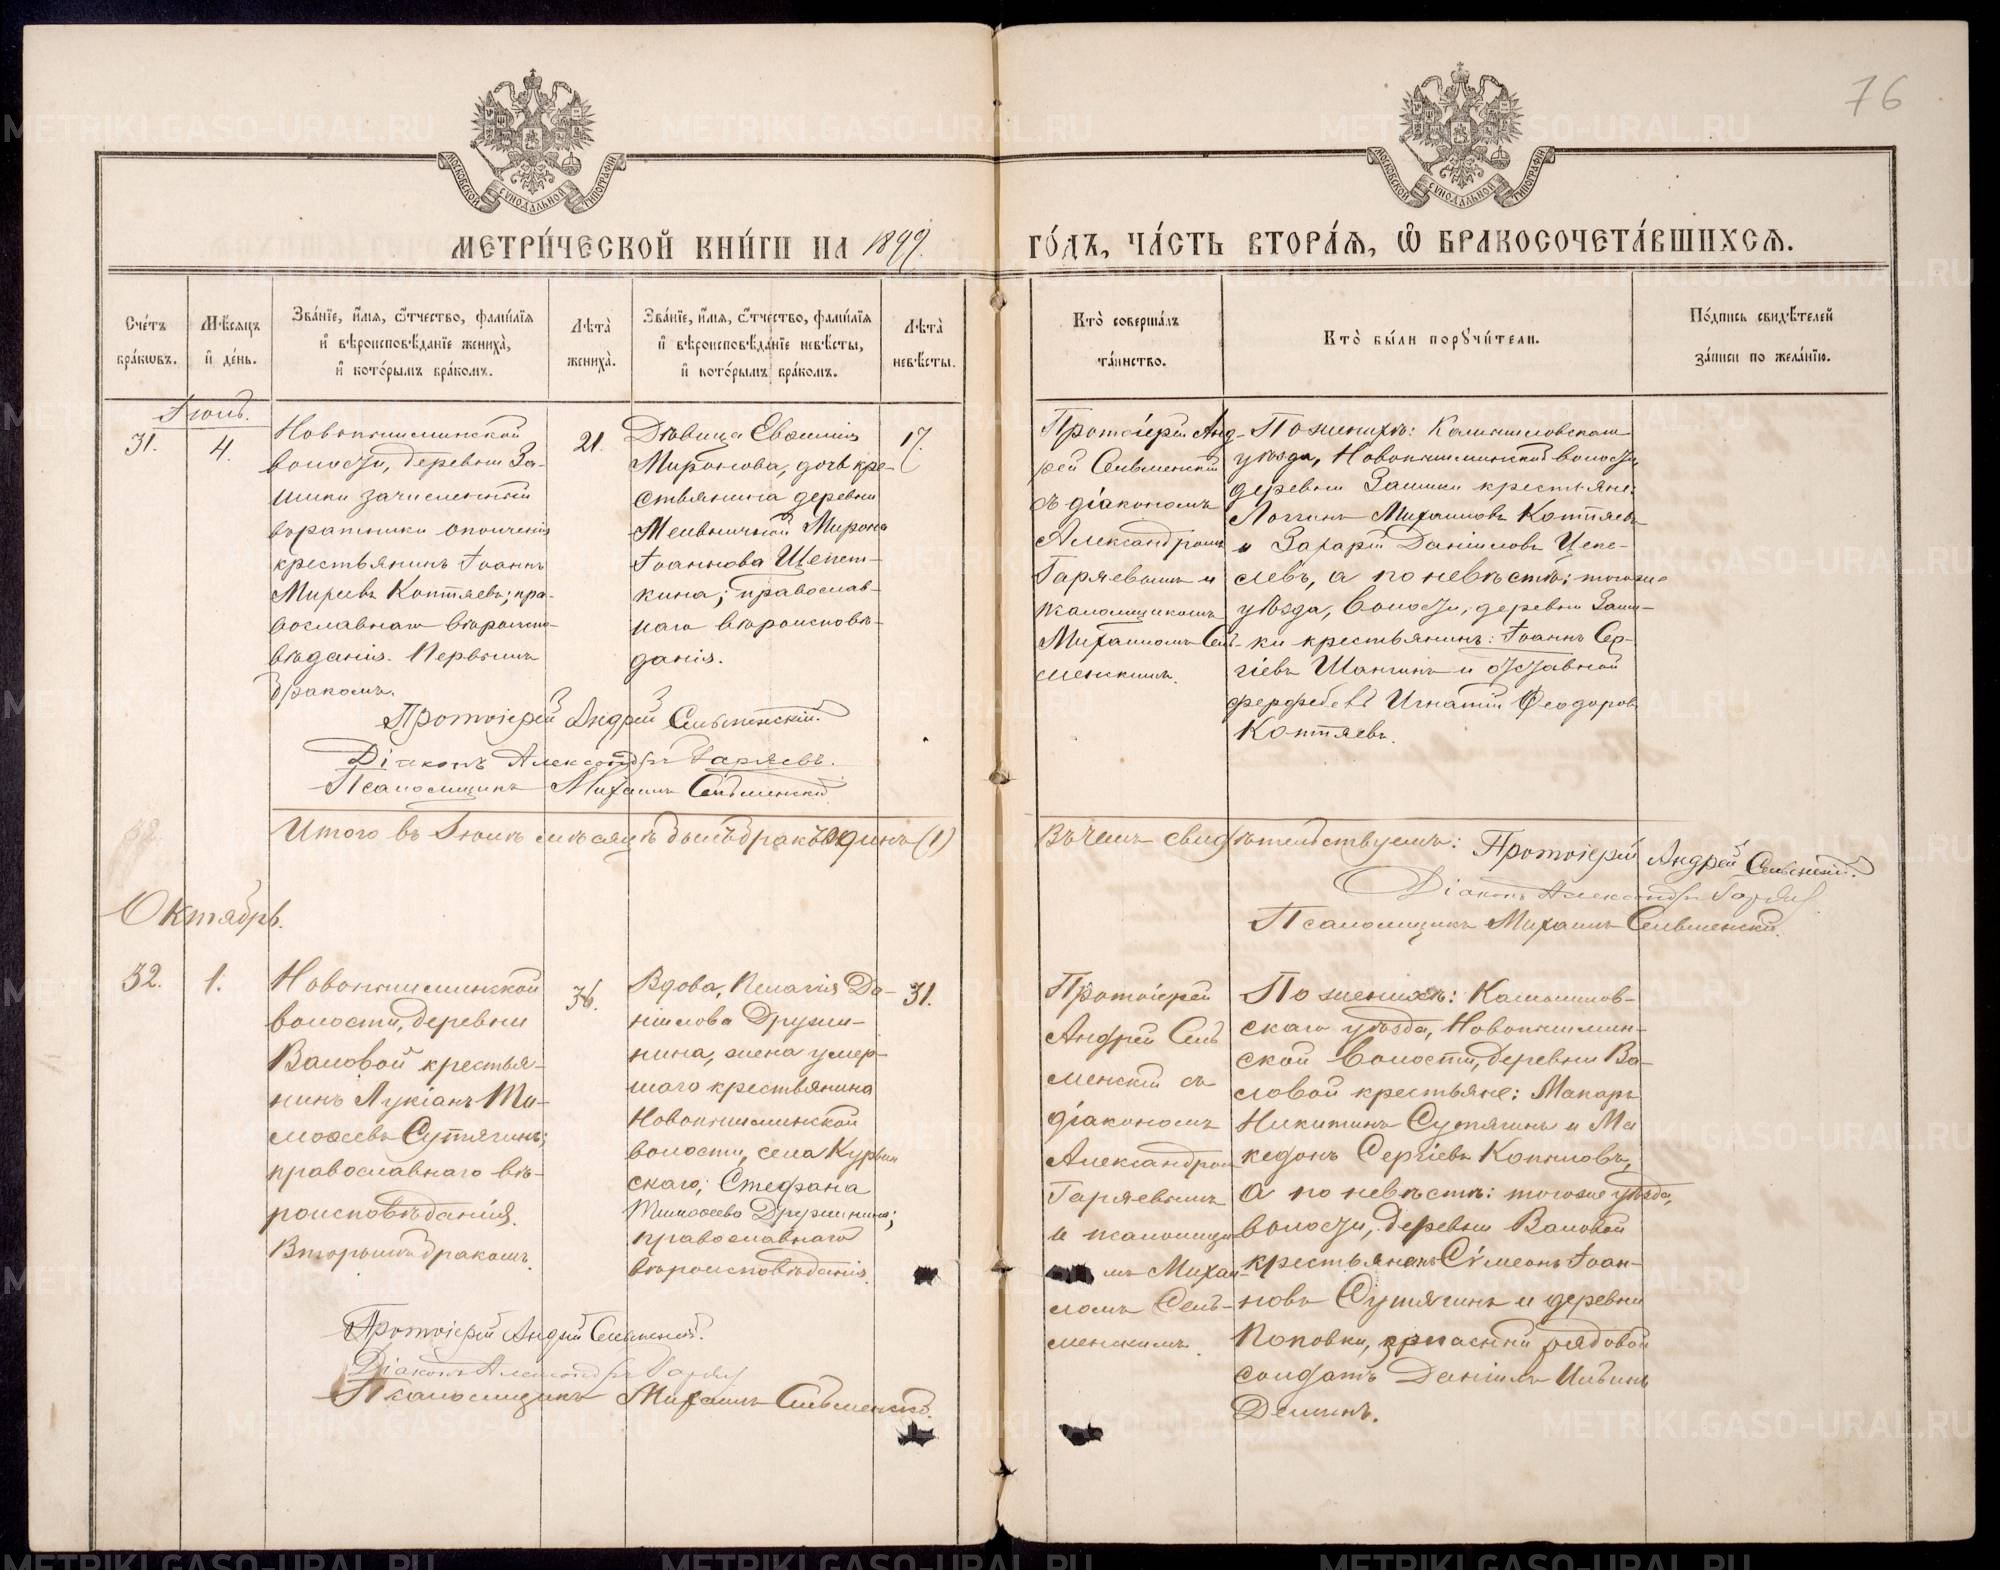 76
МОСКОВСКОЙ СѴНОДАЛЬНОЙ ТИПОГРАФІИ
МОСКОВСКОЙ СѴНОДАЛЬНОЙ ТИПОГРАФІИ
МЕТРИ́ЧЕСКОЙ КНИ́ГИ НА 1899.
ГО́ДЪ, ЧА́СТЬ ВТОРА́Ѧ, Ѽ БРАКОСОЧЕТА́ВШИХСѦ.
Сче́тъ
бра́кѡвъ.
Мѣ́сѧцъ
и́ де́нь.
Зва́нїе, и́мѧ, ѻ́тчество, фами́лїѧ
и́ вѣроисповѣ́данїе жениха̀,
и́ кото́рымъ бра́комъ.
Лѣта̀
жениха̀.
Зва́нїе, и́мѧ, ѻ́тчество, фами́лїѧ
и́ вѣроисповѣ́данїе невѣ́сты,
и́ кото́рымъ бра́комъ.
Лѣта̀
невѣ́сты.
Кто̀ соверша́лъ
та́инство.
Кто̀ бы́ли порꙋчи́тели.
По́дпись свидѣ́телей
за́писи по жела́нїю.
Іюль.
31.
4.
Новопышминской
волости, деревни За-
имки зачисленный
въ ратники ополченія
крестьянинъ Іоаннъ
Коптяевъ; пра-
вославнаго вѣроиспо-
вѣданія. Первымъ
бракомъ.
21.
Дѣвица Евѳимія
Миронова, дочь кре-
стьянина деревни
Мельничной Мирона
Іоаннова Щепет-
кина; православ-
наго вѣроисповѣ-
данія.
17.
Протоіерей Анд-
рей Сельменскій
съ діакономъ
Александромъ
Гаряевымъ и
псаломщикомъ
Михаиломъ Сель-
менскимъ.
По женихѣ: Камышловскаго
уѣзда, Новопышминской волости,
деревни Заимки крестьяне:
Логинъ Михаиловъ Коптяевъ
и Захарій Даніиловъ Цепе-
левъ, а по невѣстѣ: тогоже
уѣзда, волости, деревни Заим-
ки крестьянинъ: Іоаннъ Сер-
гіевъ Шангинъ и отставной
Игнатій Ѳеодоровъ
Коптяевъ.
Протоіерей Андрей Сельменскій.
Діаконъ Александръ Гаряевъ.
Псаломщикъ Михаилъ Сельменскій
Итого въ Іюлѣ мѣсяцѣ былъ бракъ одинъ (1)
Въ чемъ свидѣтельствуемъ: Протоіерей Андрей Сельменскій.
Діаконъ Александръ Гаряевъ
Псаломщикъ Михаилъ Сельменскій.
Октябрь.
32.
1.
Новопышминской
волости, деревни
Валовой крестья-
нинъ Лукіанъ Ти-
моѳеевъ Сутягинъ;
православнаго вѣ-
роисповѣданія.
Вторымъ бракомъ.
36.
Вдова, Пелагія Да-
ніилова Дружи-
нина, жена умер-
шаго крестьянина
Новопышминской
волости, села Курьин
скаго; Стефана
Тимоѳеева Дружинина;
православнаго
вѣроисповѣданія.
31.
Протоіерей
Андрей Сель
менскій съ
діакономъ
Александром
Гаряевымъ
и псаломщи
мъ Михаи-
ломъ Сель-
менскимъ.
По женихѣ: Камышлов-
скаго уѣзда, Новопышмин-
ской волости, деревни Ва-
ловой крестьяне: Макаръ
Никитинъ Сутягинъ и Ма
кедонъ Сергіевъ Копыловъ,
а по невѣстѣ: тогоже уѣзда,
волости, деревни Валовой
крестьянинъ Сѵмеонъ Іоан-
новъ Сутягинъ и деревни
Поповки, запасный рядовой
солдатъ Даніилъ Ильинъ
Деминъ.
Протоіерей Андрей Сельменскій.
Діаконъ Александръ Гаряевъ
Псаломщикъ Михаилъ Сельменскій.
METRIKI.GASO-URAL.RU